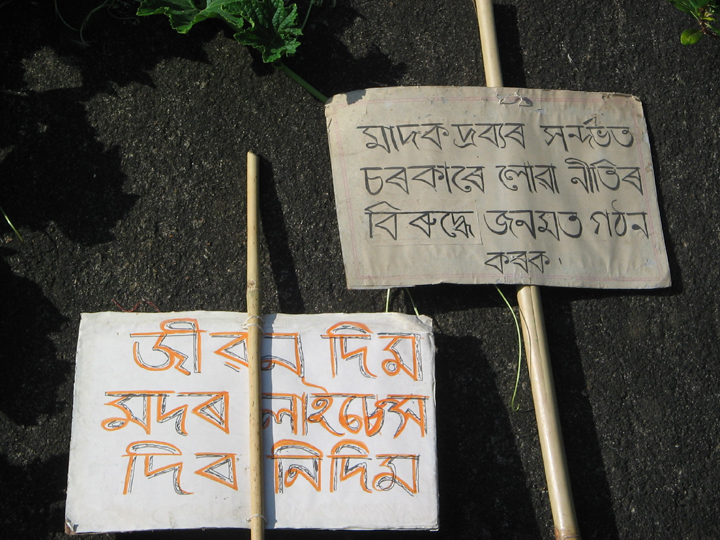 মাদক দ্ৰব্যৰ সৰ্ন্দভত
চৰকাৰে লোৱা নীতিৰ
বিৰুদ্ধে জনমত গঠন
কৰক.
জীৱন দিম
মদৰ লাইচেন্স
দিব নিদিম